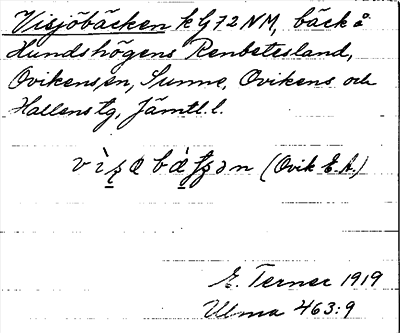 Visjöbäcken kG72NM, bäck å
Hundshögens Renbetesland,
Ovikensjen, Sunne, Ovikens och
Hallens tg, Jämtl. l.
(Ovik E.A.)
E. Terner 1919
Ulma 463:9